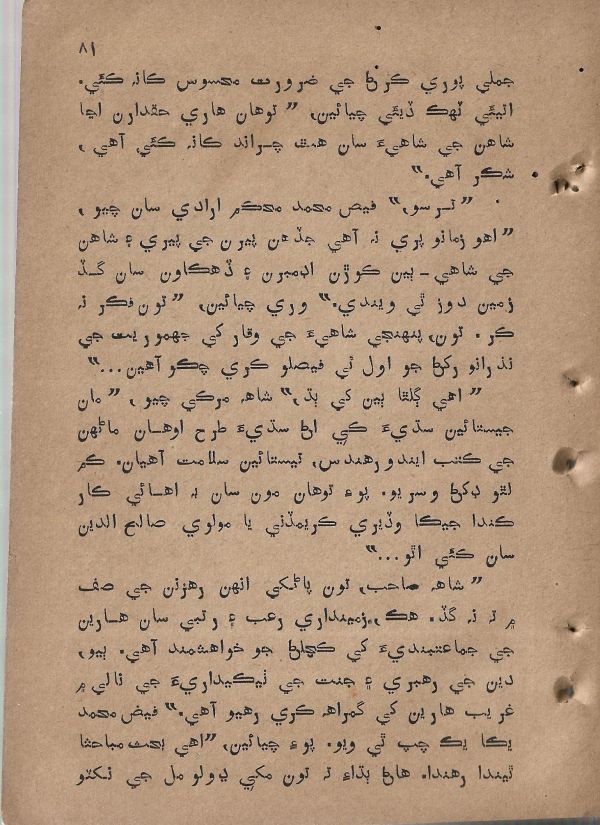 ٨١
جملي پوري ڪرڻ جي ضرورت محسوس ڪانہ ڪئي.
ائيٿي ٽهڪ ڏيئي چيائين، ”توهان هاري حقدارن اڃا
شاهن جي شاهيءَ سان هٿ چراند ڪانہ ڪئي آهي،
شڪر آهي.“
”ترسو،“ فيض محمد محڪم ارادي سان چيو،
”اهو زمانو پري نہ آهي جڏهن پيرن جي پيري ۽ شاهن
جي شاهي-ٻين ڪوڙن اڊمبرن ۽ ڏهڪاون سان گڏ
زمين دوز ٿي ويندي.“ وري چيائين، ”تون فڪر نہ
ڪر. تون، پنهنجي شاهيءَ جي وقار کي جمهوريت جي
نذرانو رکڻ جو اول ئي فيصلو ڪري چڪو آهين...“
”اهي ڳلڦا ٻين کي ٻڌ،“ شاهہ مرڪي چيو، ”مان
جيستائين سڌيءَ کي اڻ سڌيءَ طرح اوهان ماڻهن
جي ڪتب ايندو رهندس، تيستائين سلامت آهيان. ڪم
لٿو ڊکڻ وسريو. پوءِ توهان مون سان بہ اهائي ڪار
ڪندا جيڪا وڏيري ڪريمڏني يا مولوي صالح الدين
سان ڪئي اٿو...“
”شاهہ صاحب، تون پاڻکي انهن رهزنن جي صف
۾ تہ نہ گڏ. هڪ، زمينداري رعب ۽ رتبي سان هارين
جي جماعتبنديءَ کي ڪچلڻ جو خواهشمند آهي. ٻيو،
دين جي رهبري ۽ جنت جي ٺيڪيداريءَ جي نالي ۾
غريب هارين کي گمراهہ ڪري رهيو آهي.“ فيض محمد
يڪا يڪ چپ ٿي ويو. پوءِ چيائين، ”اهي بحث مباحثا
ٿيندا رهندا. هاڻ ٻڌاءِ تہ تون مکي ڊولو مل جي نڪتو